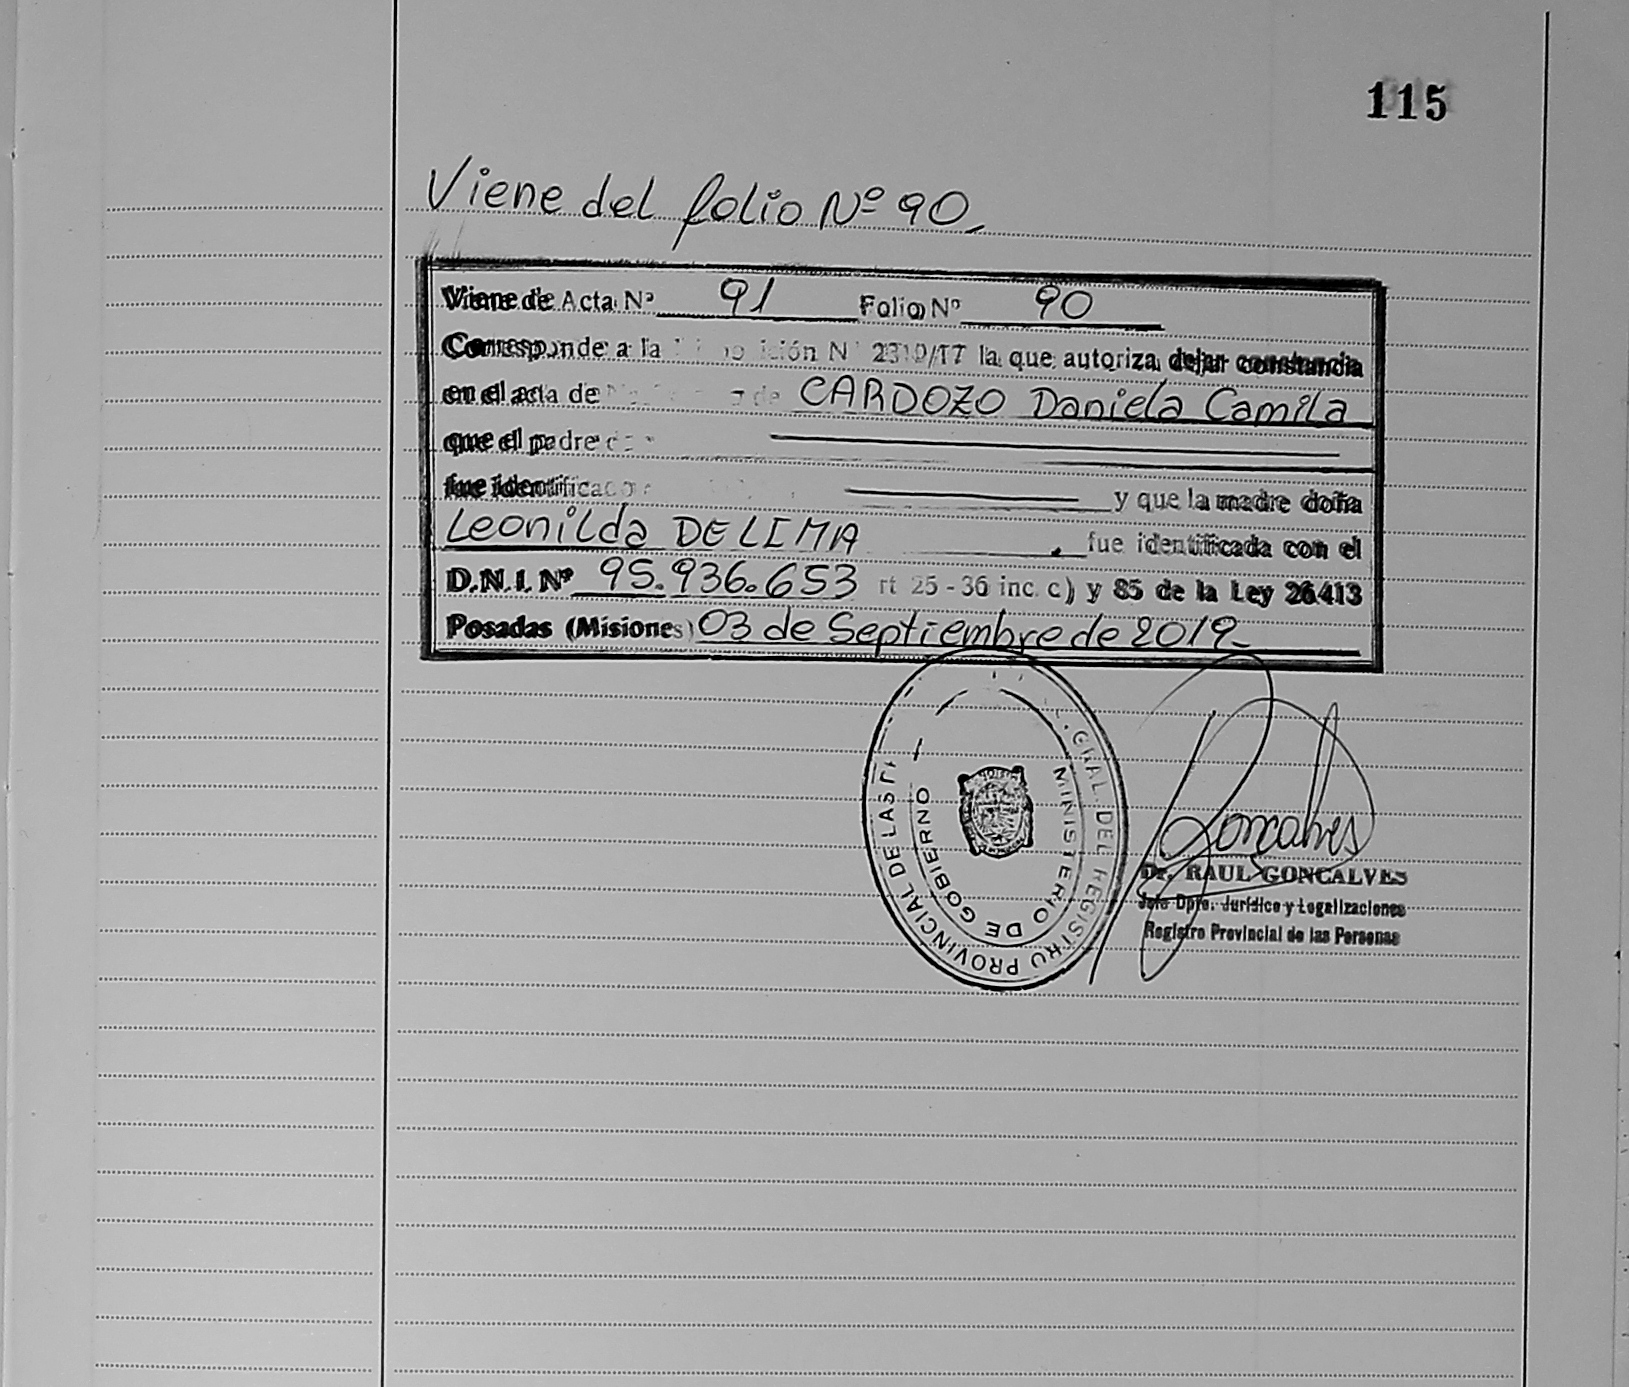 115
Viene del folio Nº 90
Viene de Acta Nº 91 Folio Nº 90
Corresponde a la N° 2310/77 la que autoriza dejar constancia
en el acta de de CARDOZO Daniela Camila
que el padre
fue identificado y que la madre doña
Leonilda DE LIMA fue identificada con el
D.N.I. Nº 95.936.653 rt 25 - 36 inc. c) y 85 de la Ley 26413
Posadas (Misiones) 03 de Septiembre de 2019
GRAL. DEL REGISTRO PROVINCIAL DE LAS
MINISTERIO DE GOBIERNO
Goncalves
Dr. RAUL GONCALVES
Jefe Dpto. Jurídico y Legalizaciones
Registro Provincial de las Personas